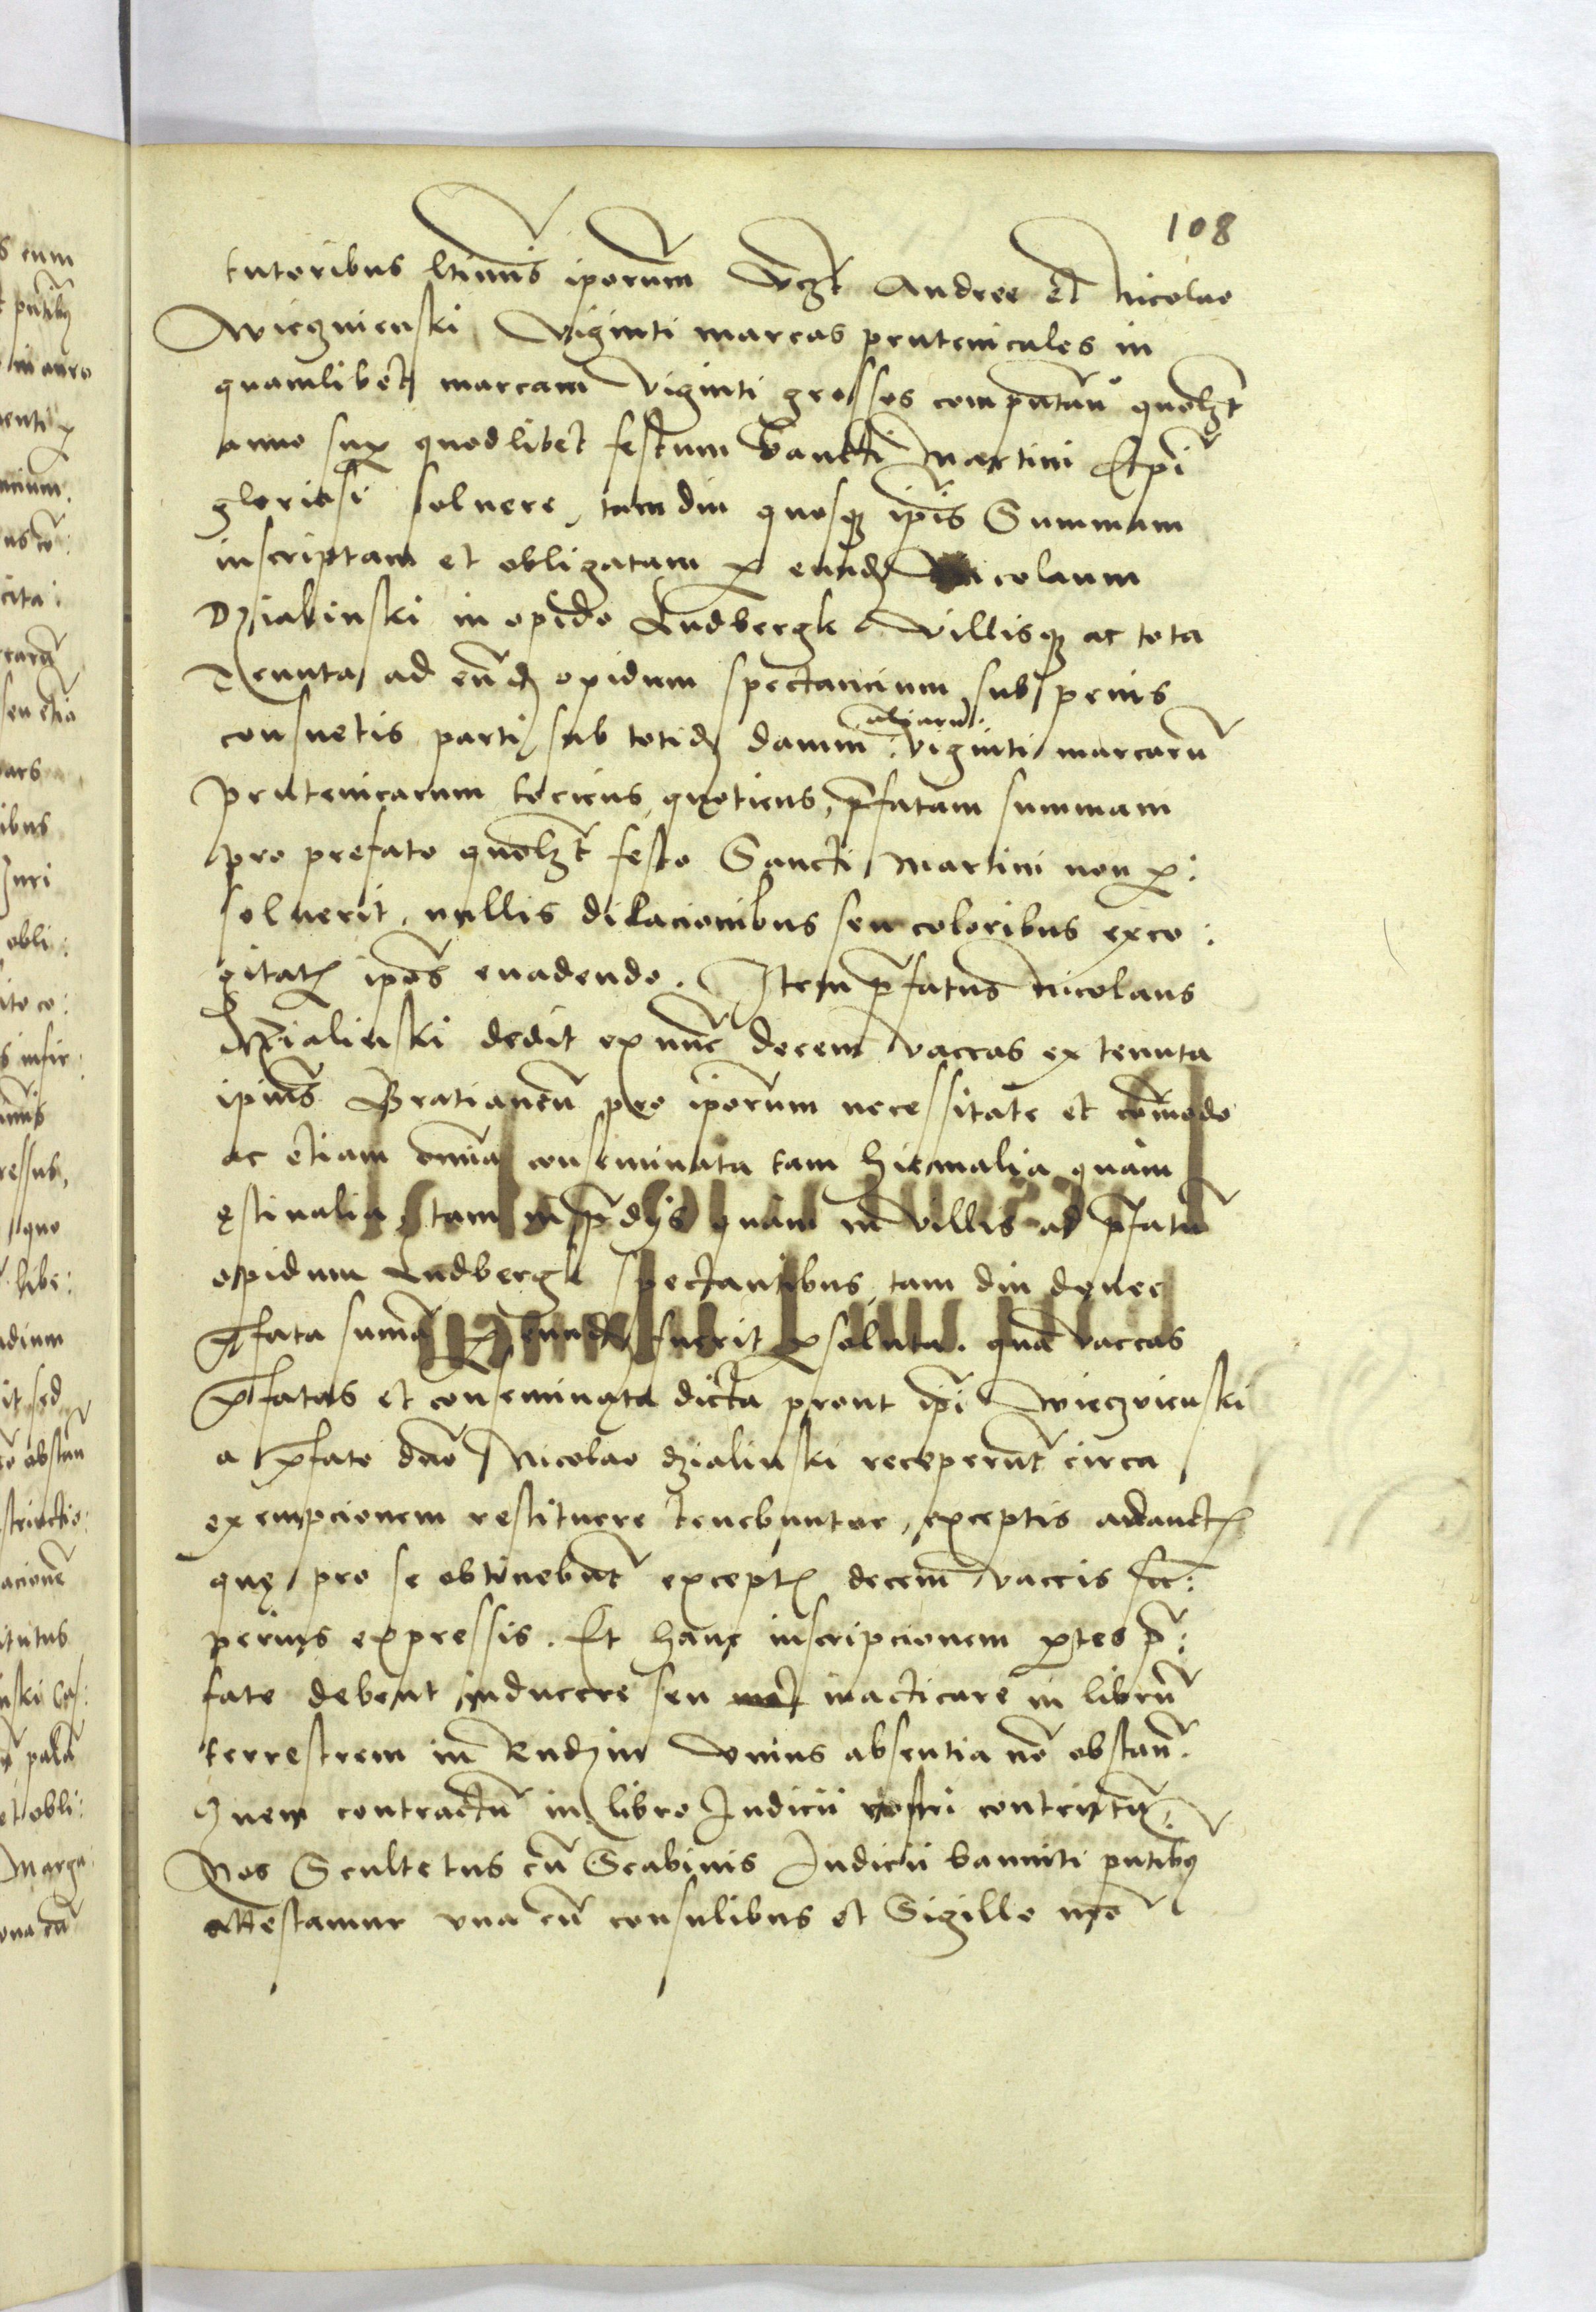 108
tutoribus ltimis iporum vczt Andree et Nicolao
Wieczwienski, Viginti marcas prutenicales in
quamlibet marcam Viginti grossos computan̄ quolzt
anno sup quodlibet festum Sancti Martini Epi
gloriosi soluere, tamdiu quosq ipīs Summam
inscriptam et obligatam p eundē Nicolaum
Dzialinski in opido Ludbergk Villisq ac tota
Tenuta ad eūdē opidum spectancium sub penis
consuetis parti sub totidē damnī viginti marcarū
aliarū
prutenicarum tociens quotiens, p̄fatam summam
pro prefato quolzt festo Sancti Martini non p:
soluerit, nullis dilacionibus seu coloribus exco:
gitatis ipos euadendo. Item p̄fatus Nicolaus
Dzialinski dedit ex nunc decem vaccas ex tenuta
ipius Bratianen̄ pro iporum necessitate et cōmodo
ac etiam omīa conseminata tam hiemalia quam
ęstiualia, tam in p̄dijs quam in Villis ad p̄fatū
opidum Ludbergk spectantibus, tam diu donec
p̄fata sumā p eundē fuerit psoluta. quā vaccas
p̄fatas et conseminata dicta prout ipī Wieczwienski
a p̄fato dno Nicolao dzialinski receperūt circa
exempcionem restituere tenebuntur, exceptis adauctis
quę pro se obtinebūt exceptis decem vaccis su:
perius expressis. Et hanc inscripcionem ptes p̄:
fate debent inducere seu inacticare in librū
terrestrem in Radzin vnius absentia nō obstan̄.
Quem contractū in libro Iudicii nostri contentū
Nos Scultetus cū Scabinis Iudicii banniti pntibus
attestamur vna cū consulibus et Sigillo nro